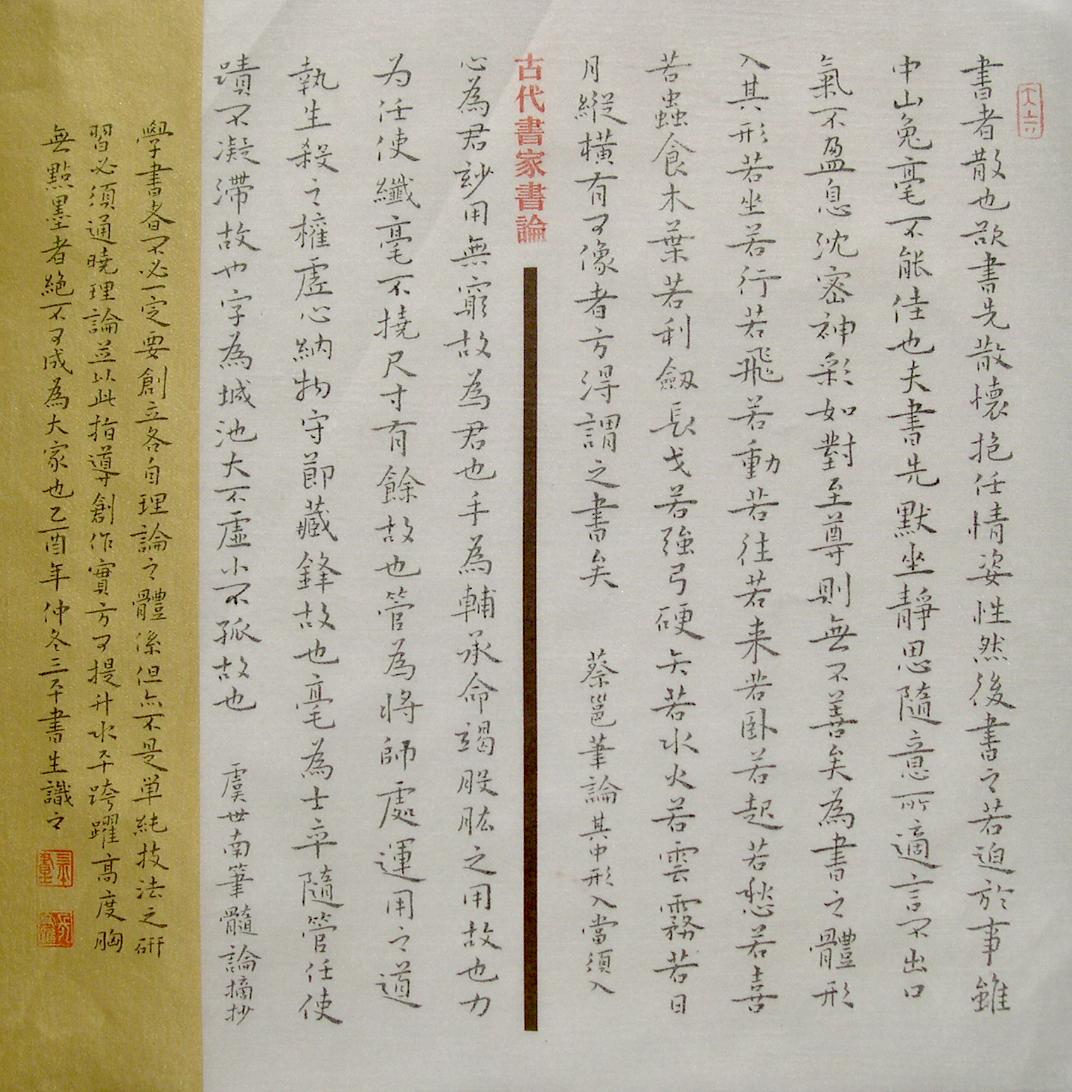 書者散也欲書先散懷抱任情姿性然後書之若迫於事雖
中山兔毫不能佳也夫書先默坐靜思隨意所適言不出口
氣不盈息沈密神彩如對至尊則無不善矣為書之體形
入其形若坐若行若飛若動若往若来若卧若起若愁若喜
若蟲食木葉若利劔長戈若強弓硬矢若水火若雲霧若日
月縱橫有可像者方得謂之書矣 蔡邕筆論其中形入當須入
古代書家書論
心為君玅用無窮故為君也手為輔承命竭股肱之用故也力
為任使纖毫不撓尺寸有餘故也管為將帥處運用之道
執生殺之權虛心納物守節藏鋒故也毫為士卒隨管任使
蹟不凝滯故也字為城池大不虛小不孤故也 虞世南筆髓論摘抄
學書者不必一定要創立各自理論之體係但亦不是单純技法之研
習必須通曉理論並以此指導創作實方可提升水平跨躍高度胸
無點墨者絕不可成為大家也乙酉年仲冬三平書生識之